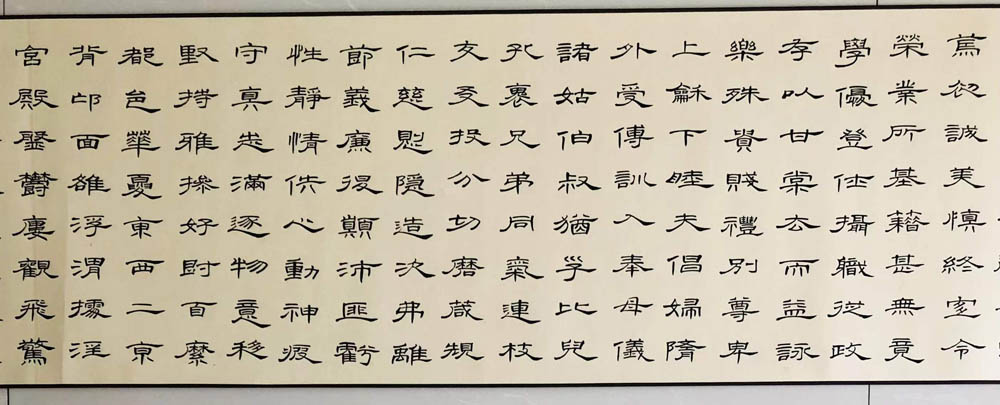 篤初誠美慎終宜令
榮業所基籍甚無竟
學優登仕攝職從政
存以甘棠去而益詠
樂殊貴賤禮別尊卑
上龢下睦夫倡婦隨
外受傅訓入奉母儀
諸姑伯叔猶子比兒
孔褱兄弟同氣連枝
交友投分切磨箴規
仁慈惻隱造次弗離
節義廉退顛沛匪虧
性靜情佚心動神疲
守真志滿逐物意移
堅持雅操好爵自縻
都邑華夏東西二京
背邙面雒浮渭據涇
宮殿盤鬱廔觀飛驚